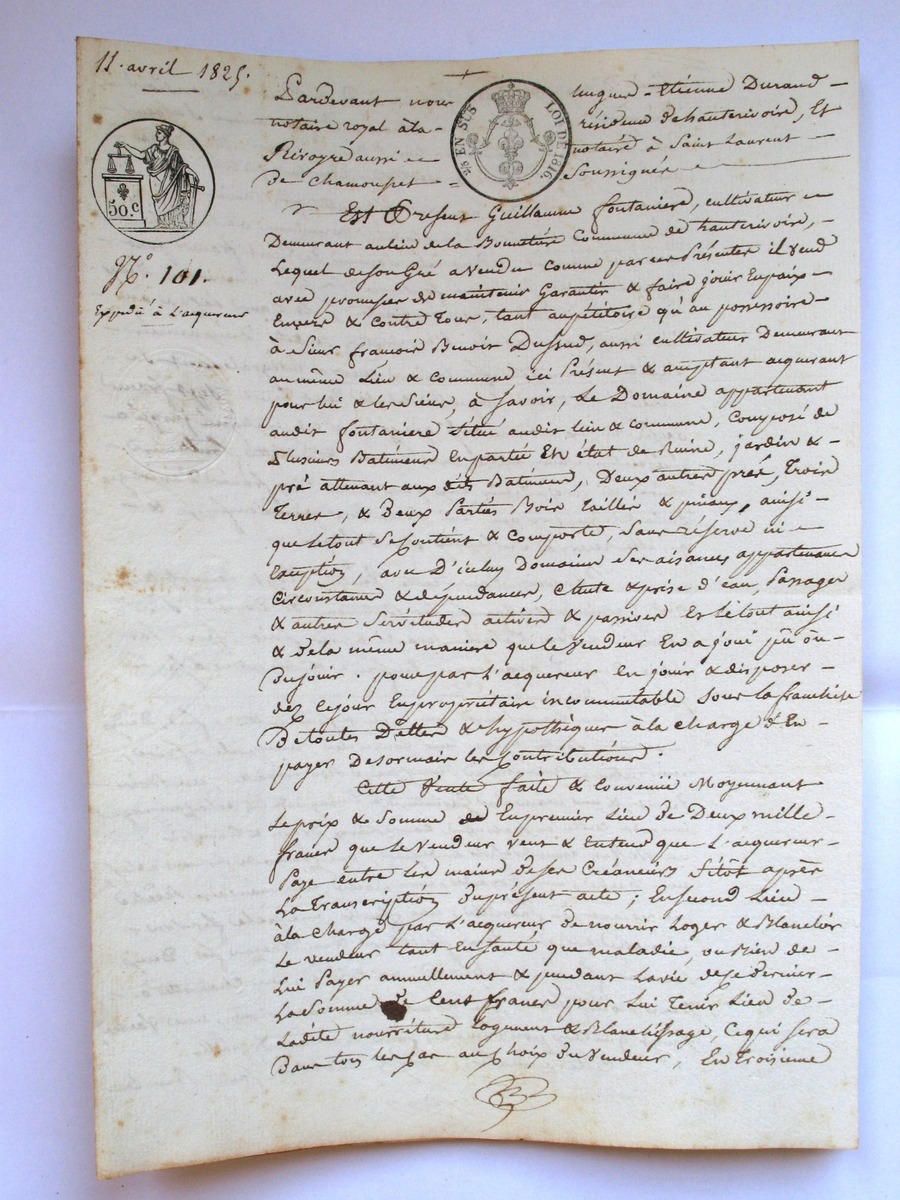 11. avril 1825.
Pardevant nous ... ugue - Etienne Durand -
notaire royal à la - résidence de hauterivoire, Et
Rivoyre aussi notaire à Saint Laurent
De Chamousset - Soussignés
25 EN SUS LOI DE 1816.
50.c
N.o 101.
Expédié à L'acquereur
Est Present Guillaume fontaniere, cultivateur
Demeurant au lieu de la Commune de hauterivoire, -
Lequel de son Gré a vendu comme par ces Présentes il vend
avec promesse de maintenir Garantir & faire jouir En paix -
Envers & Contre Tous, tant au pétitoire qu'au possessoire -
à Sieur francois Benoit Dussud, aussi cultivateur Demeurant
au même Lieu & commune ici Présent & acceptant acquerant
pour lui & les Siens, à Savoir, Le Domaine appartenant
audit fontaniere Situé audit lieu & commune, Composé de
Plusieurs Batimens En partie En état de Ruine, jardin &
pré attenant aux dits Batimens, Deux autres prés, Trois
Terres, & Deux Parties Bois Taillis & pineaux, ainsi -
que le tout Se Contient & Comporte, Sans réserve ni
Exception, avec D'icelui Domaine Ses aisances appartenances
Circonstances & dépendances, Chute & prise d'eau, Passages
& autres Servitudes actives & passives Et le tout ainsi
& de la même maniere que le Vendeur En a joui pû ou -
Du jouir. pour par L'acquereur En jouir & disposer -
dès Ce jour En propriétaire incommutable Sous la franchise
De toutes Dettes & hypothèques à la Charge d'En -
payer Desormais les Contributions.
Cette Vente faite & Convenüe Moyennant
Le prix & Somme de En premier Lieu de Deux mille -
francs que le Vendeur veut & Entend que L'acquereur -
Paye entre les mains de ses Créanciers Sitôt après
La Transcription du présent acte; En second Lieu -
à la Charge par L'acquereur de nourrir Loger & Blanchir
Le vendeur tant En Santé que maladie, ou Bien de -
Lui Payer annuellement & pendant la vie de ce dernier -
La Somme De Cent francs pour Lui Tenir Lieu de -
Ladite nourriture Logement & Blanchissage, Ce qui sera
Dans tous les cas au Choix du Vendeur, En Troisieme